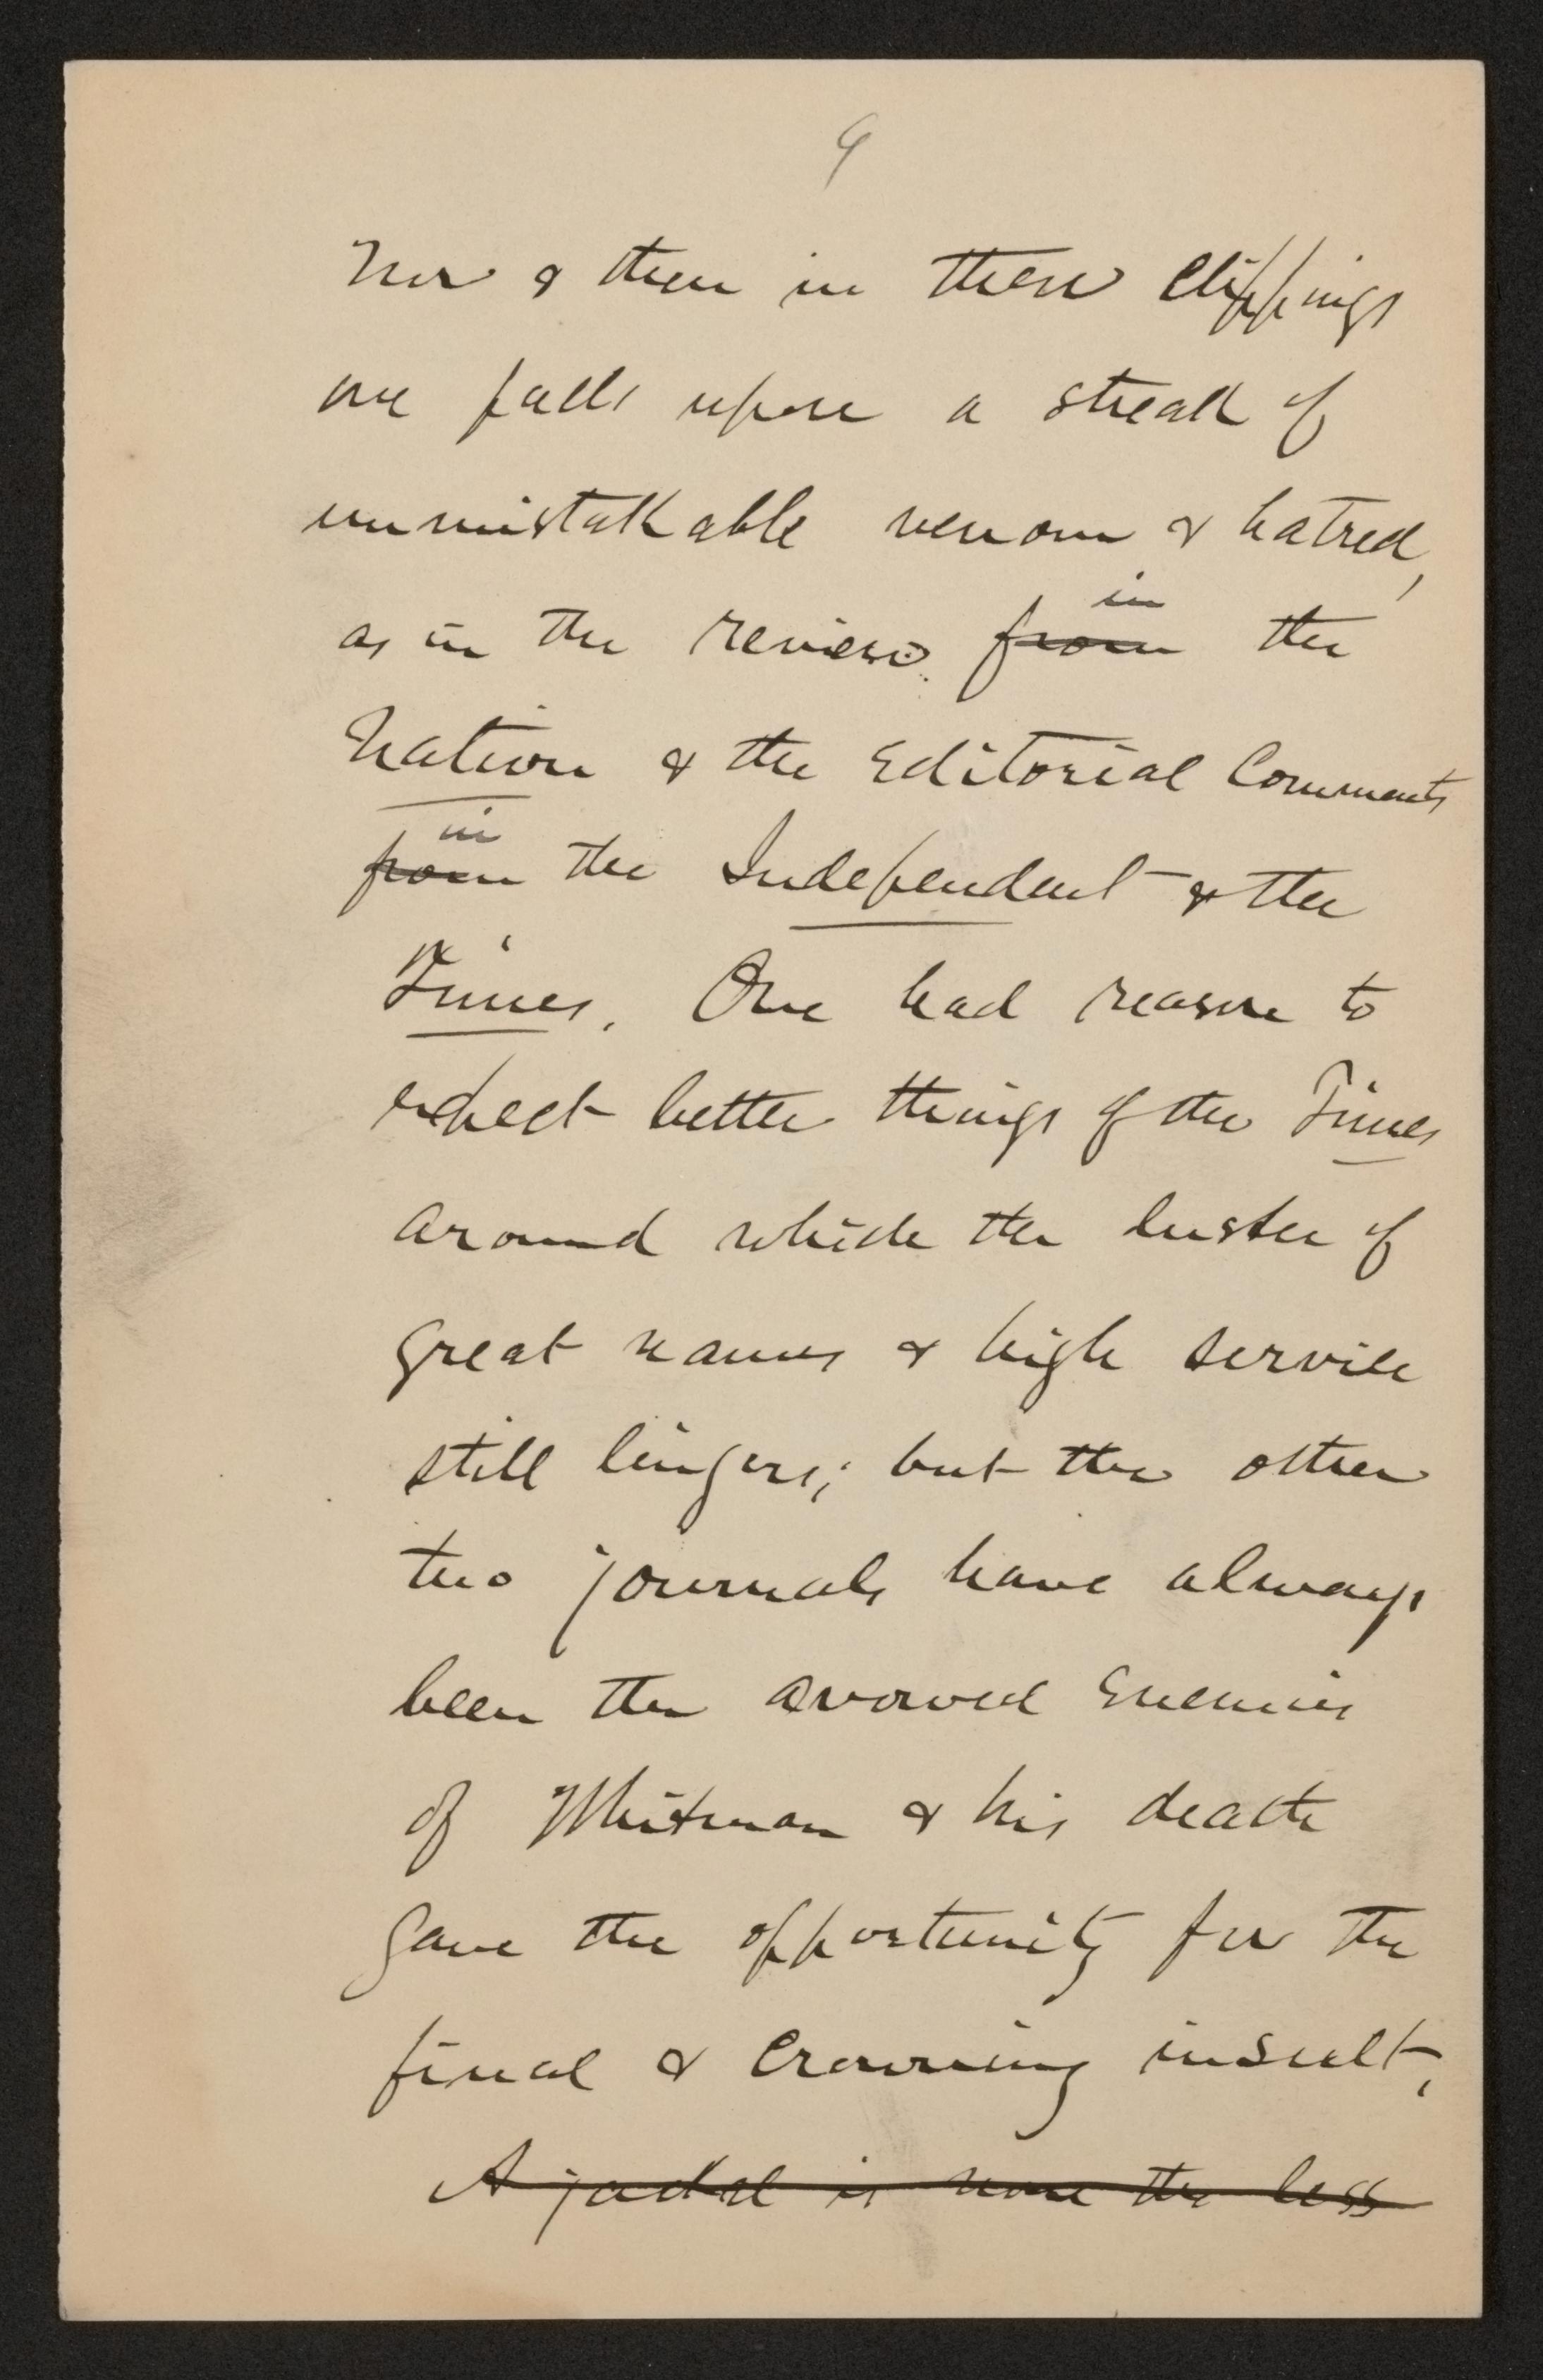 9
Now & then in these clippings
one falls upon a streak of
unmistakable venom & hatred,
as in the review from in the
Nation & the Editorial Comments
from in the Independent & the
Times. One had reason to
expect better things of the Times
around which the luster of
great names & high service
still lingers; but the other
two journals have always
been the avowed Enemies
of Whitman & his death
gave the opportunity for the
final & crowning insult.
A jackal is none the less